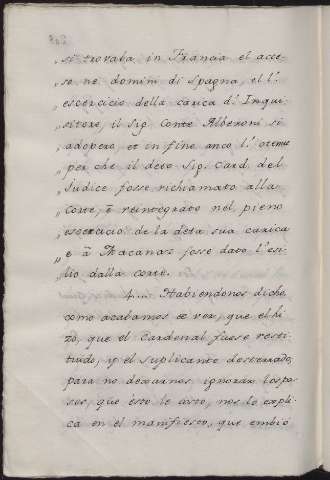 „ si trovaba in Francia el acce-
„ so ne domini di Spagna, et l'
„ esercicio della carica d'Inqui-
„ sitore, il Sig. Conte Alberoni si
„ adoperò, et in fine anco l'otenne
„ per che il deto Sig. Card. del
„ Judice fosse richiamato alla
„ corte, è reintegrato nel pieno
„ esercicio de la deta sua carica
„ e à Macanas fosse dato l'esi-
„ lio dalla corte.
4... Habiendonos dicho,
como acabamos de ver, que el hi-
zo, que el Cardenal fuese resti-
tuido, y el suplicante desterrado,
para no dexarnos ignorar los pa-
sos, que esto le costo, nos lo expli-
ca en el manifiesto, que embiò